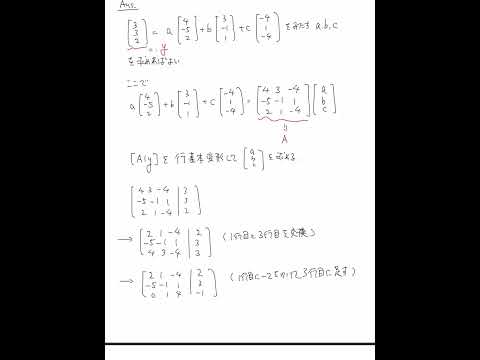 Ans.
[3 3 2] = a [4 -5 2] + b [3 -1 1] + c [-4 1 -4] をみたす a.b.c
=: y
を求めればよい
ここで
a [4 -5 2] + b [3 -1 1] + c [-4 1 -4] = [4 3 -4 -5 -1 1 2 1 -4] [a b c]
=
A
[A|y] を行基本変形して [a b c] を求める
[4 3 -4 | 3
-5 -1 1 | 3
2 1 -4 | 2]
→ [2 1 -4 | 2
-5 -1 1 | 3
4 3 -4 | 3] (1行目と3行目を交換)
→ [2 1 -4 | 2
-5 -1 1 | 3
0 1 4 | -1] (1行目に-2をかけて3行目に足す)